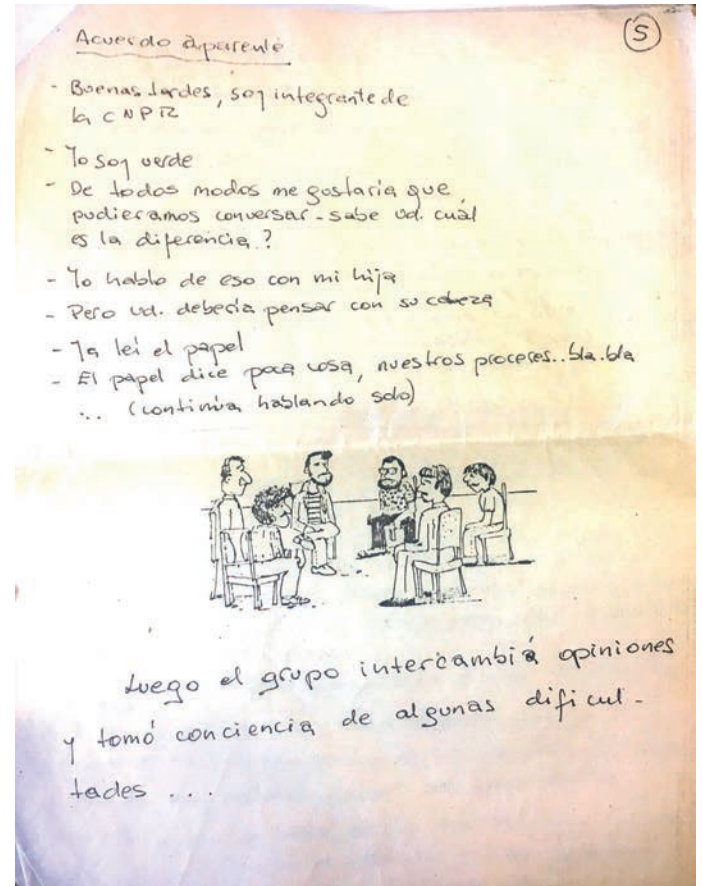 5
Acuerdo aparente
- Buenas tardes, soy integrante de
la CNPR
- Yo soy verde
- De todos modos me gustaría que
pudieramos conversar - sabe ud. cuál
es la diferencia?
- Yo hablo de eso con mi hija
- Pero ud. debería pensar con su cabeza
- Ya leí el papel
- El papel dice poca cosa, nuestros proceres.. bla.bla
... (continúa hablando solo)
Luego el grupo intercambió opiniones
y tomó conciencia de algunas dificul-
tades ...